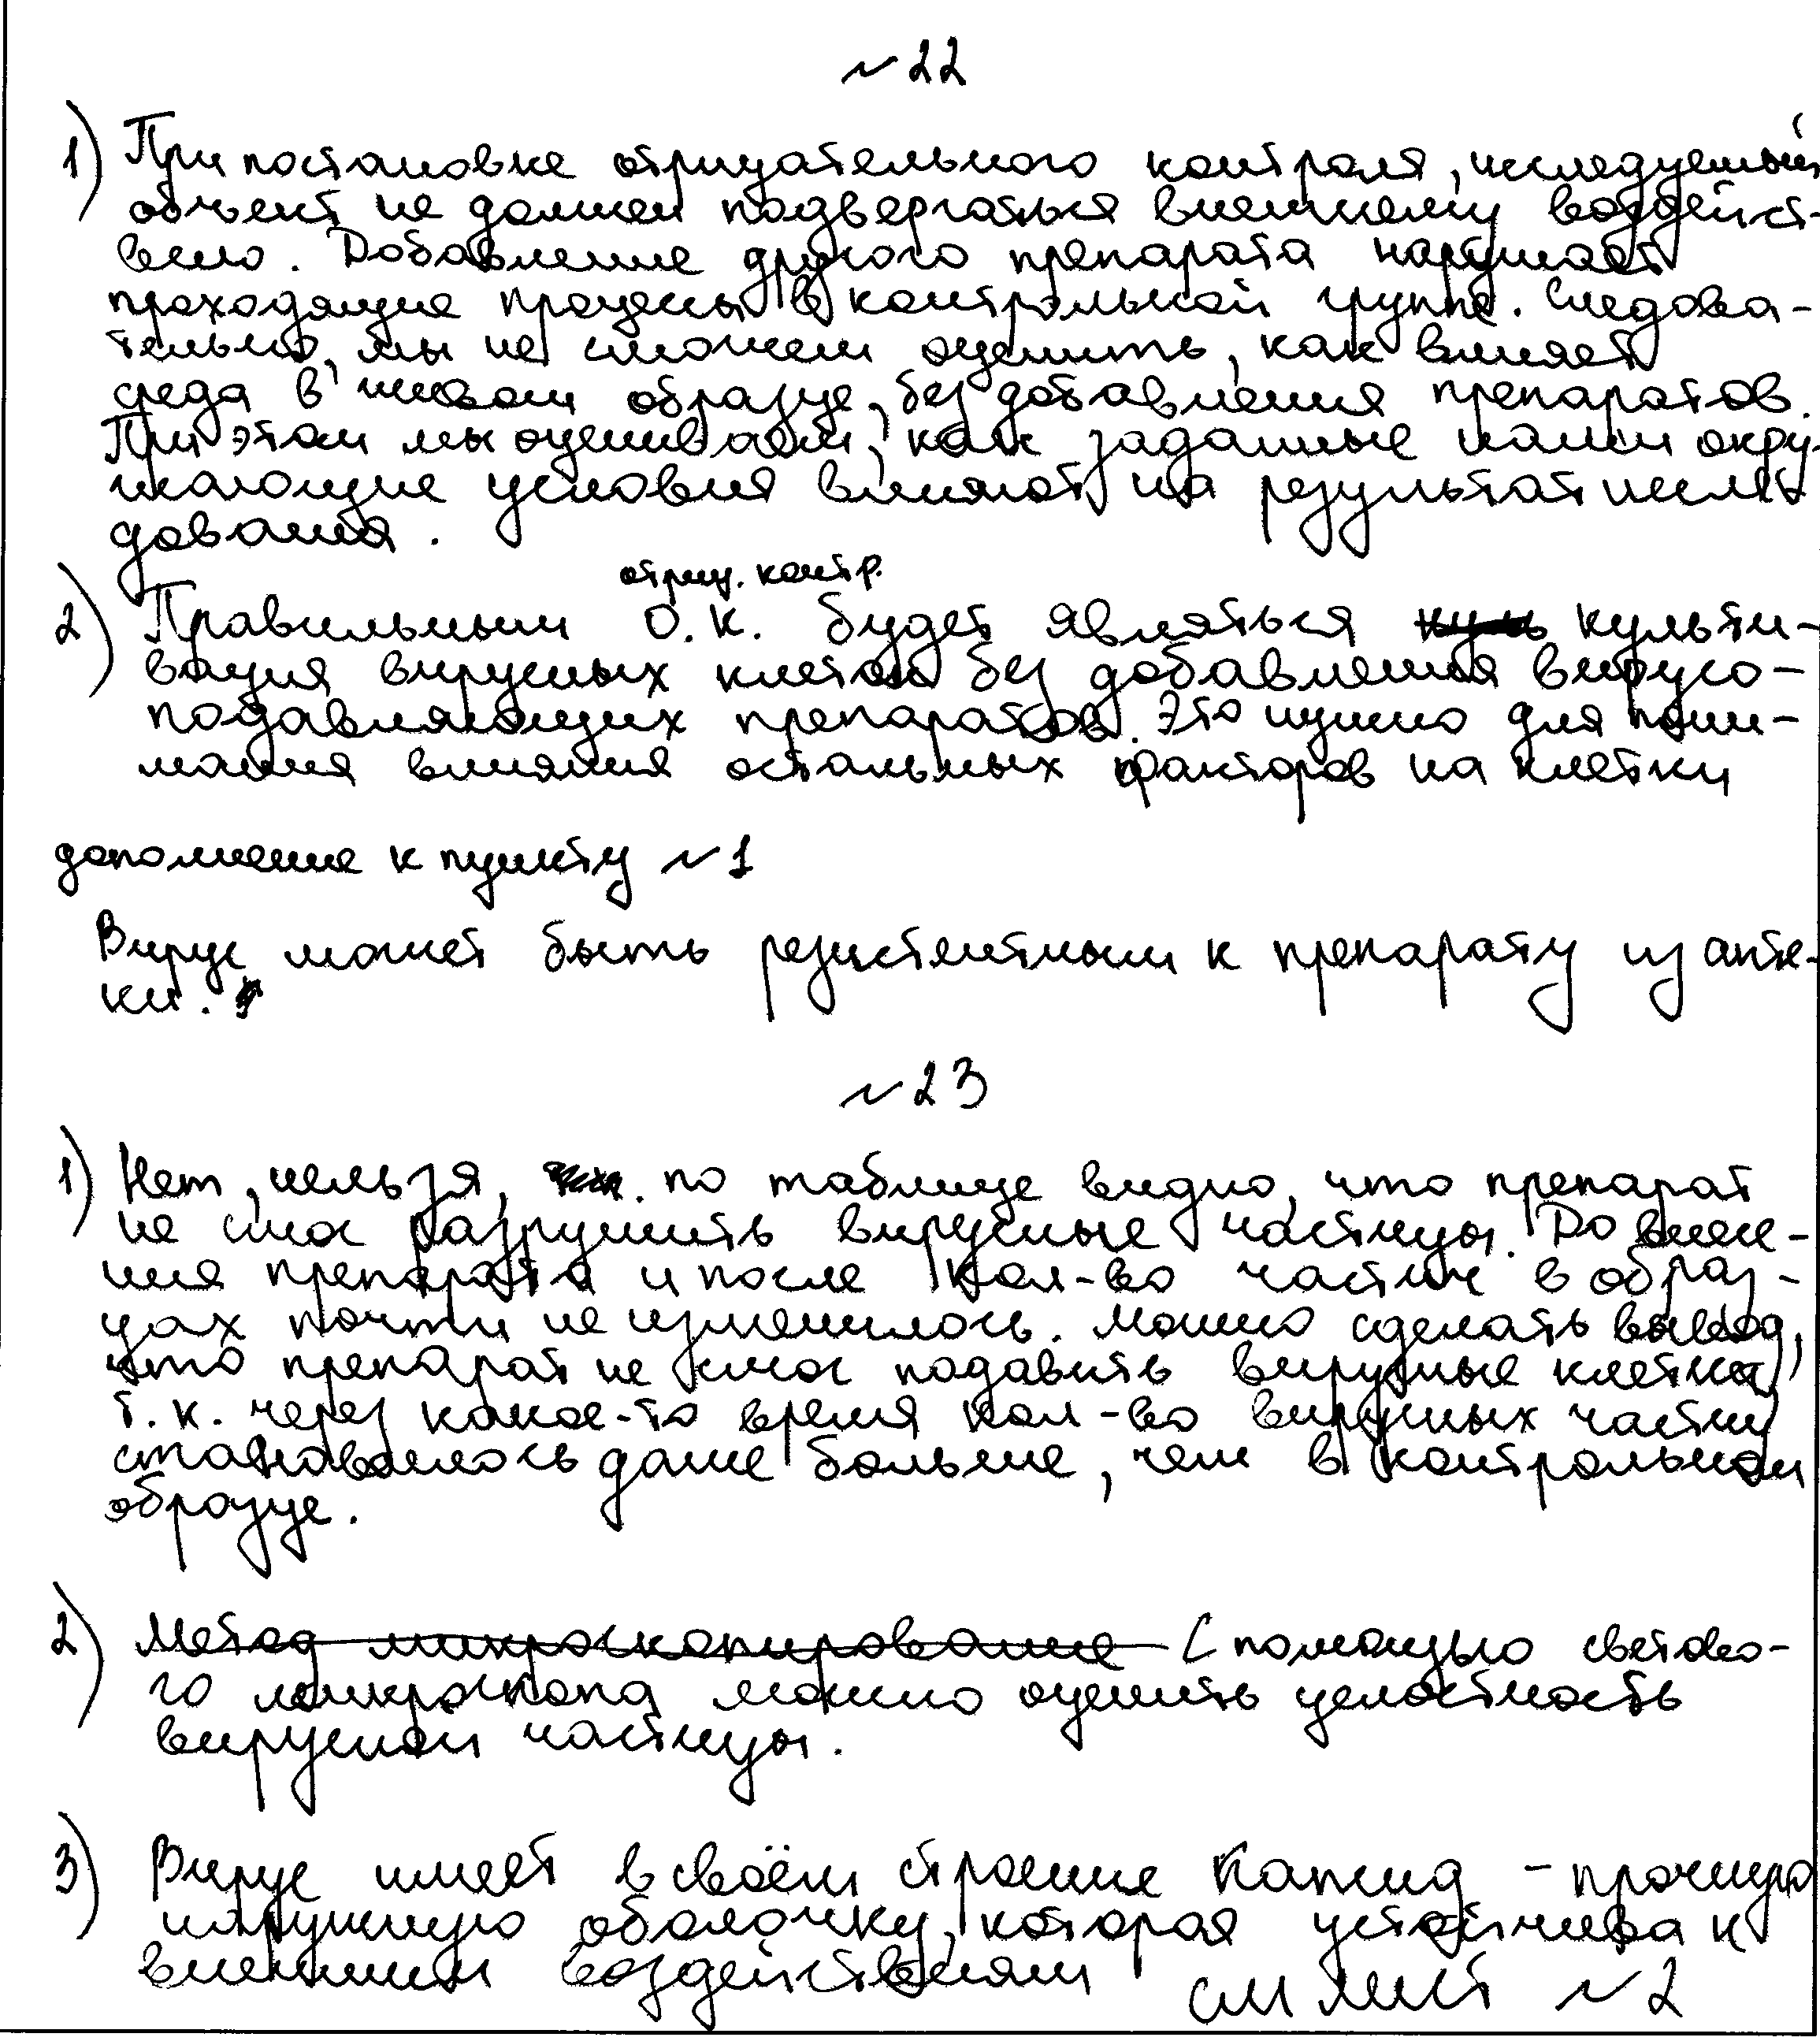 ~ 22
1) При постановке отрицательного контроля, исследуемый
объект не должен подвергаться внешнему воздейст-
вию. Добавление другого препарата нарушает
проходящие процессы в контрольной группе. Следова-
тельно, мы не сможем оценить, как влияет
среда в живом образце, без добавления препаратов.
При этом мы оцениваем, как заданные нами окру-
жающие условия влияют на результат иссле-
дования.
отриц. контр.
2) Правильным О.К. будет являться культи-
вация вирусных клеток без добавления вирусо-
подавляющих препаратов. Это нужно для пони-
мания влияния остальных факторов на клетки
дополнение к пункту ~ 1
Вирус может быть резистентным к препарату из апте-
ки.
~ 23
1) Нет, нельзя, по таблице видно, что препарат
не смог разрушить вирусные частицы. До внесе-
ния препарата и после кол-во частиц в образ-
цах почти не изменилось. Можно сделать вывод,
что препарат не смог подавить вирусные клетки,
т.к. через какое-то время кол-во вирусных частиц
становилось даже больше, чем в контрольном
образце.
2) Метод микроскопирование С помощью светово-
го микроскопа можно оценить целостность
вирусной частицы.
3) Вирус имеет в своём строение капсид - прочную
наружную оболочку, которая устойчива к
внешним воздействиям
см лист ~ 2